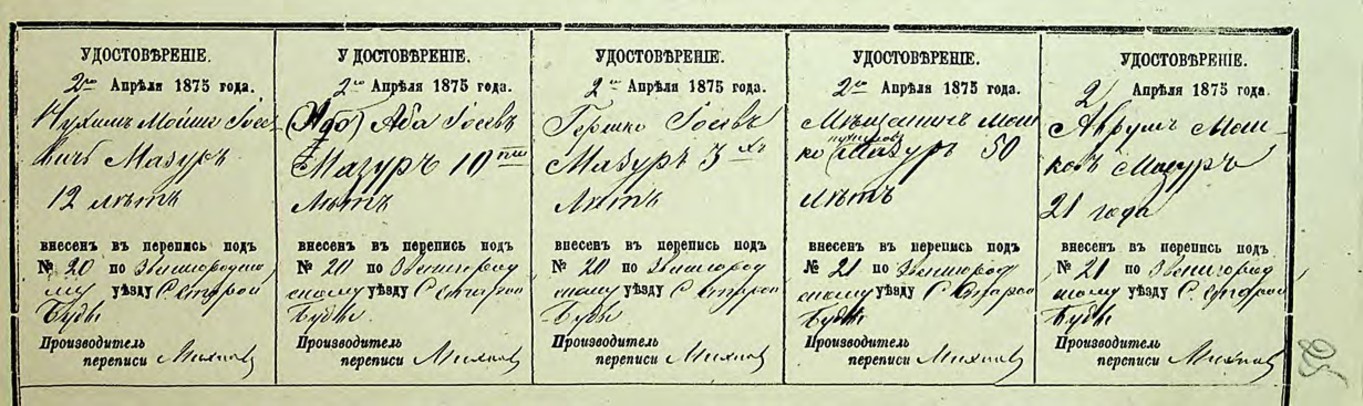 УДОСТОВѢРЕНІЕ.
2го Апрѣля 1875 года.
Нухимъ Мойше Іосе-
вичъ Мазуръ
12 лѣтъ
внесенъ въ перепись подъ
№ 20 по Звенигородско
му уѣзду С. Старой
Буды
Производитель
переписи
УДОСТОВѢРЕНІЕ.
2го Апрѣля 1875 года.
Аба Іосевъ
Мазуръ 10ти
лѣтъ
внесенъ въ перепись подъ
№ 20 по Звенигород
скому уѣзду С. Старой
Буды
Производитель
переписи
УДОСТОВѢРЕНІЕ.
2го Апрѣля 1875 года.
Гершко Іосевъ
Мазуръ 3хъ
лѣтъ
внесенъ въ перепись подъ
№ 20 по Звенигород
скому уѣзду С. Старой
Буды
Производитель
переписи
УДОСТОВѢРЕНІЕ.
2го Апрѣля 1875 года.
Мѣщанинъ Мош
ко Мазуръ 50
лѣтъ
внесенъ въ перепись подъ
№ 21 по Звенигород
скому уѣзду С. Старой
Буды
Производитель
переписи
УДОСТОВѢРЕНІЕ.
2 Апрѣля 1875 года.
Аврумъ Мош-
ковъ Мазуръ
21 года
внесенъ въ перепись подъ
№ 21 по Звенигород
скому уѣзду С. Старой
Буды
Производитель
переписи